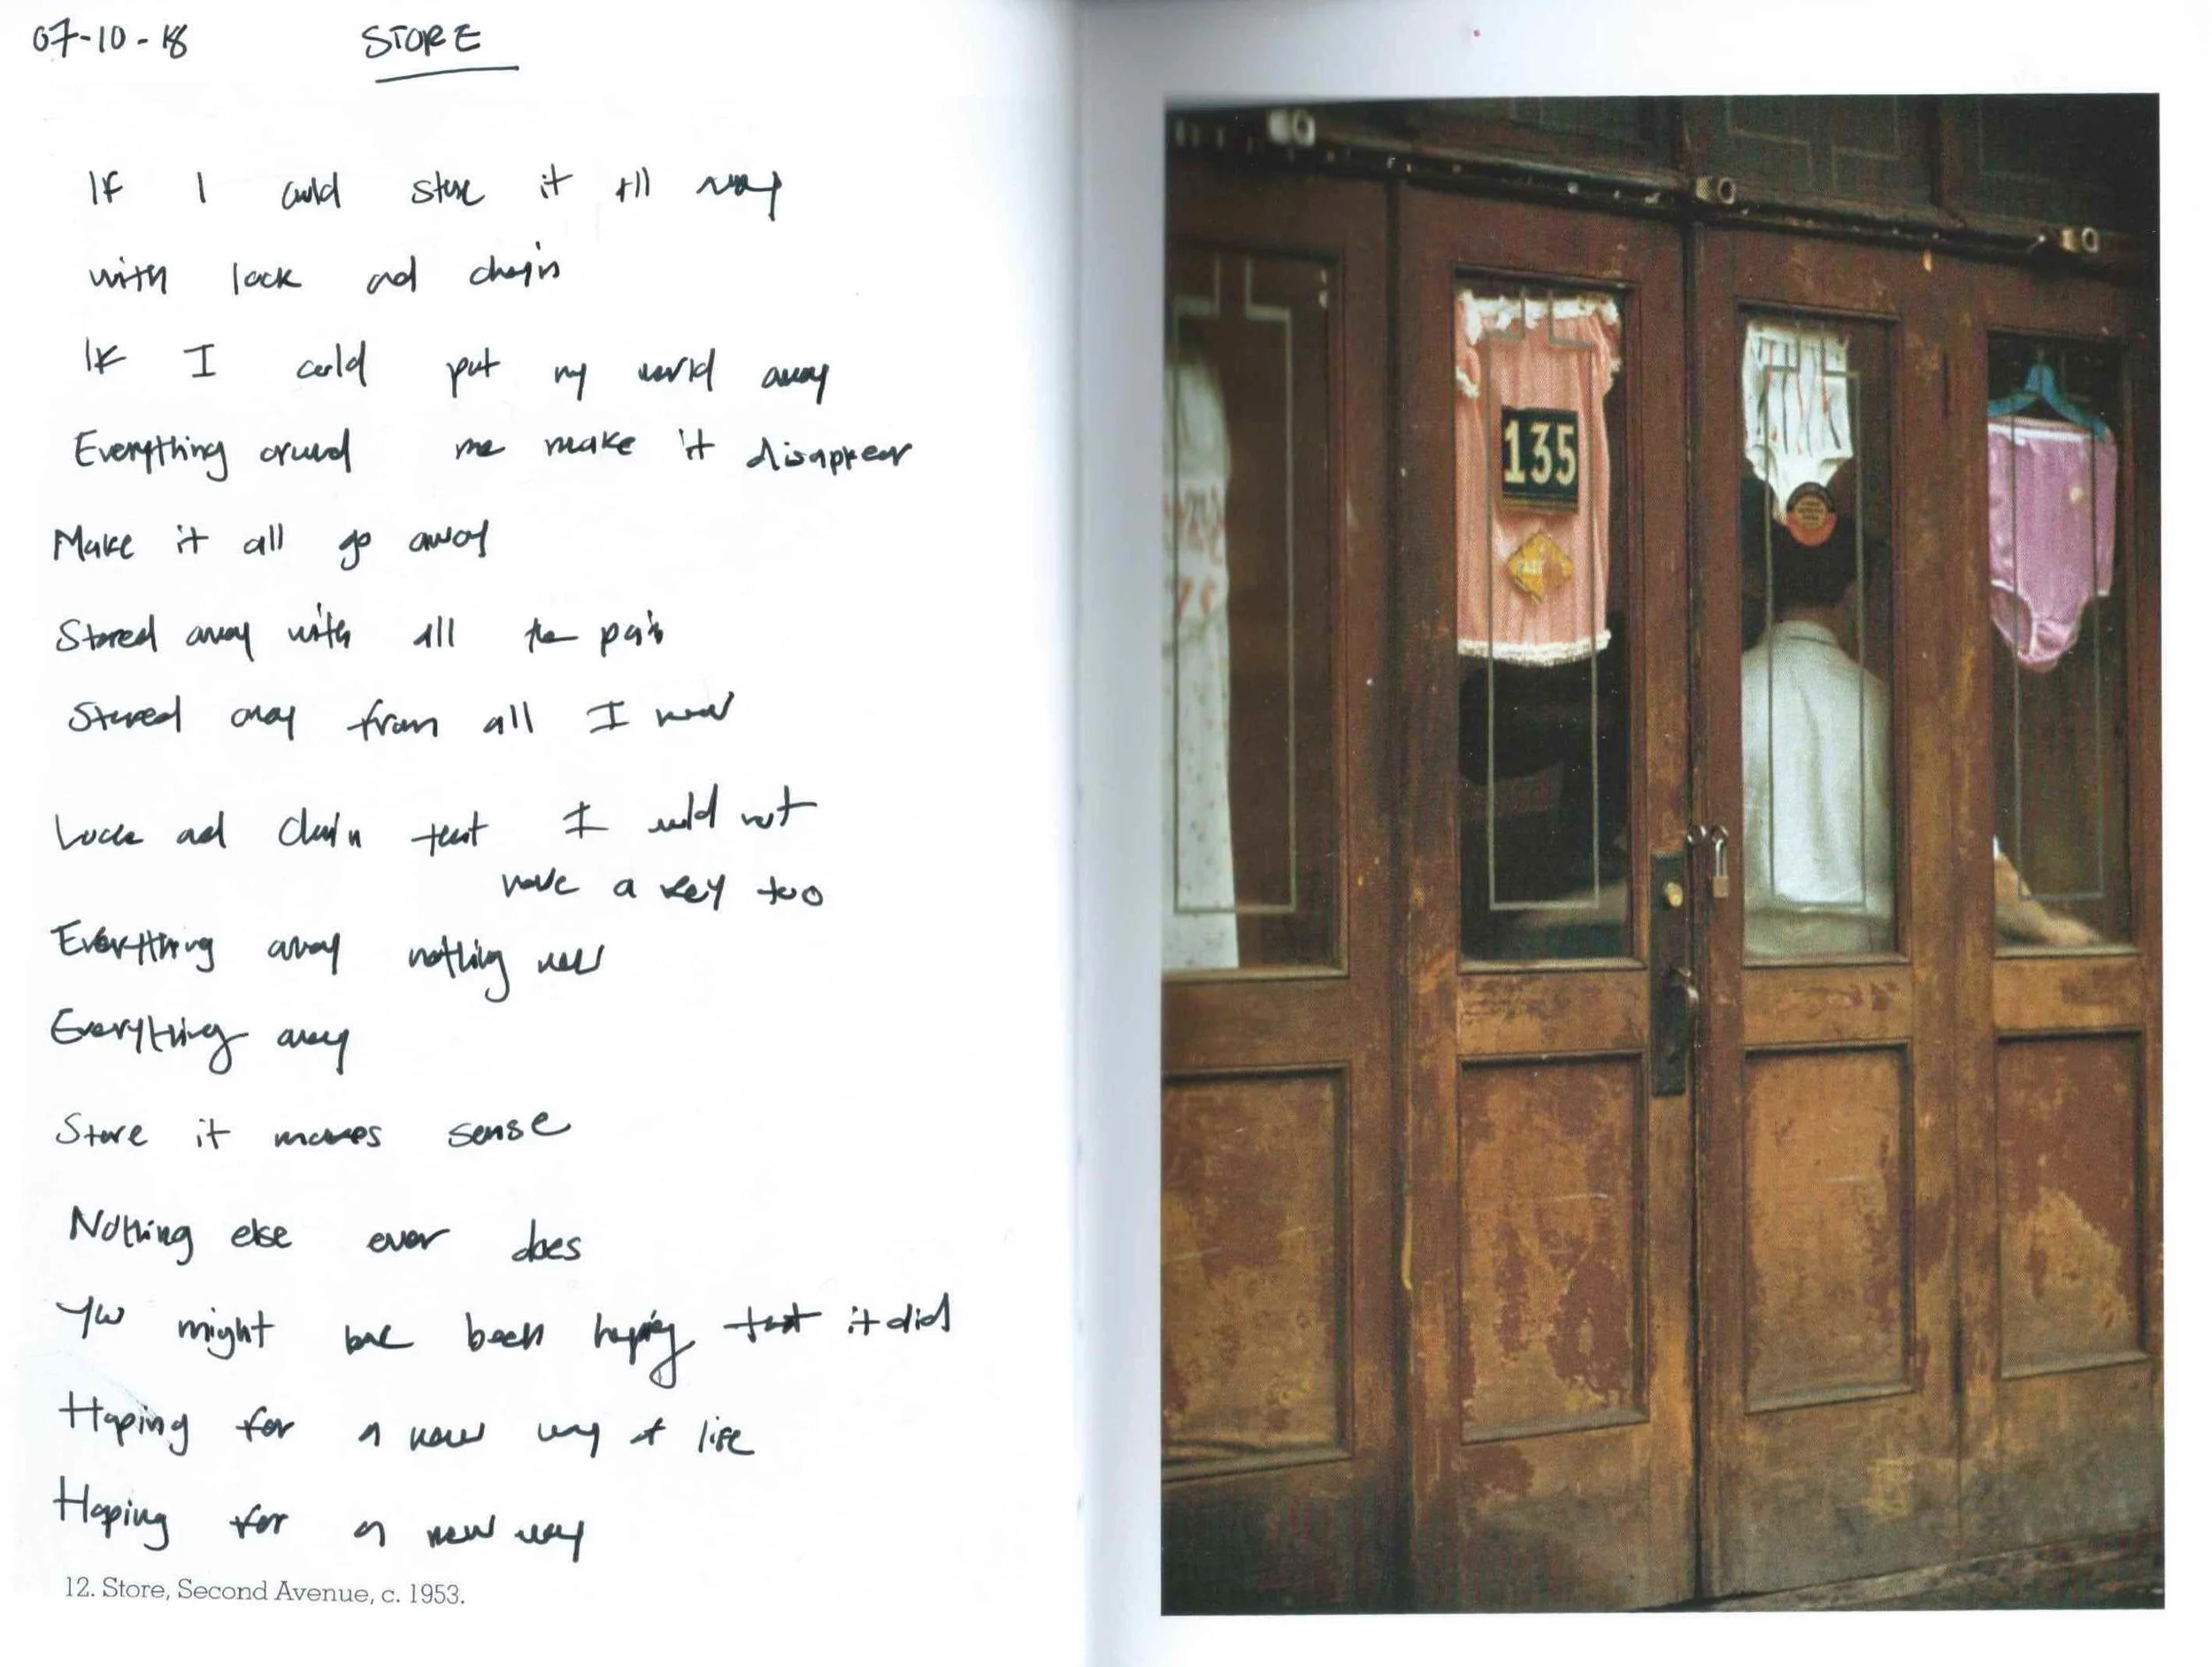 07-10-18 STORE
If I could store it all away
with lock and chain
If I could put my world away
Everything around me make it disappear
Make it all go away
Stored away with all the pain
Stored away from all I need
Lock and chain that I could not
have a key too
Everything away nothing new
Everything away
Store it makes sense
Nothing else ever does
You might have been hoping that it did
Hoping for a new way of life
Hoping for a new way
12. Store, Second Avenue, c. 1953.
135